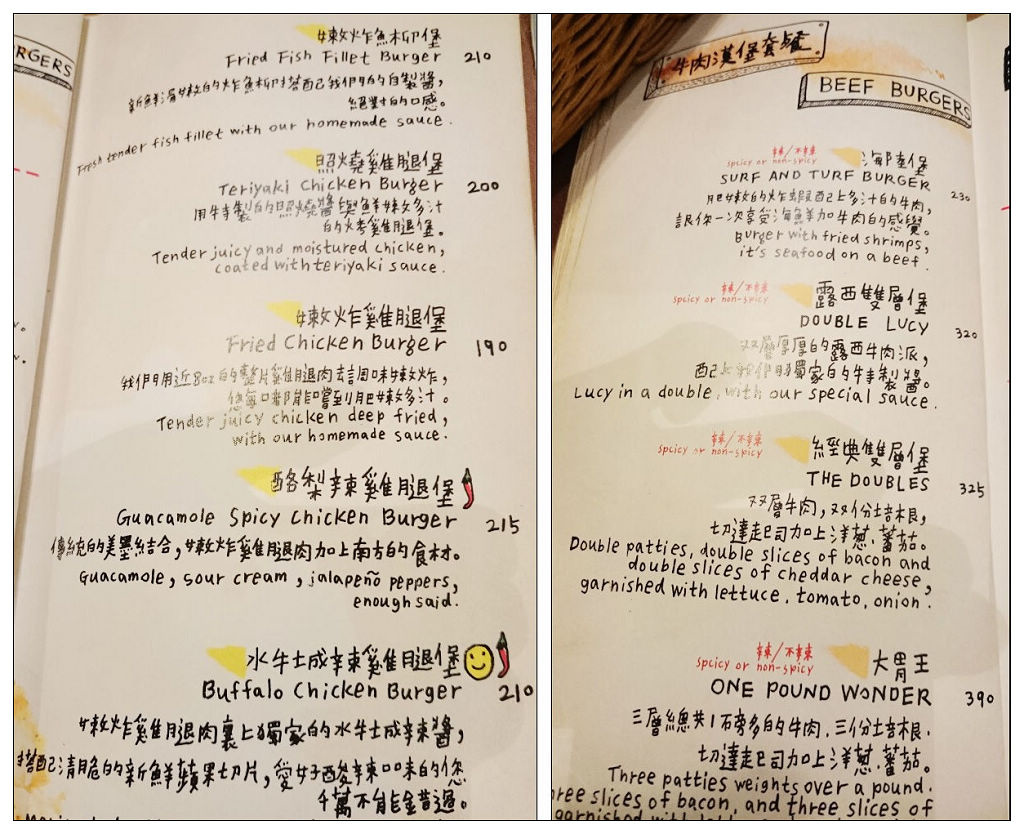 BURGERS
嫩炸魚柳堡
Fried Fish Fillet Burger 210
新鮮滑嫩的炸魚柳搭配我們的自製醬,
絕對的口感。
Fresh tender fish fillet with our homemade sauce.
照燒雞腿堡
Teriyaki Chicken Burger 200
用特製的照燒醬與鮮嫩多汁
的烤雞腿堡。
Tender juicy and moistured chicken,
coated with teriyaki sauce.
嫩炸雞腿堡
Fried Chicken Burger 190
我們用近8oz的整片雞腿肉去調味嫩炸,
您每口都能嚐到肥嫩多汁。
Tender juicy chicken deep fried,
with our homemade sauce.
酪梨辣雞腿堡
Guacamole Spicy Chicken Burger 215
傳統的美墨結合,嫩炸雞腿肉加上南方的食材。
Guacamole, sour cream, jalapeño peppers,
enough said.
水牛城辣雞腿堡
Buffalo Chicken Burger 210
嫩炸雞腿肉裹上獨家的水牛城辣醬,
搭配清脆的新鮮蘋果切片,愛好酸辣口味的您
千萬不能錯過。
牛肉漢堡套餐
BEEF BURGERS
辣/不辣
spcicy or non-spicy
海陸堡
SURF AND TURF BURGER 230
肥嫩的炸蝦配上多汁的牛肉,
讓你一次享受海鮮加牛肉的感覺。
Burger with fried shrimps,
it's seafood on a beef.
辣/不辣
spcicy or non-spicy
露西雙層堡
DOUBLE LUCY 320
双層厚厚的露西牛肉派,
配上我們獨家的特製醬。
Lucy in a double, with our special sauce.
辣/不辣
spcicy or non-spicy
經典雙層堡
THE DOUBLES 325
双層牛肉,双份培根,
切達起司加上洋蔥.蕃茄。
Double patties, double slices of bacon and
double slices of cheddar cheese,
garnished with lettuce, tomato, onion.
辣/不辣
spcicy or non-spicy
大胃王
ONE POUND WONDER 390
三層總共1磅多的牛肉.三份培根.
切達起司加上洋蔥.蕃茄。
Three patties weights over a pound.
three slices of bacon, and three slices of
garnished with